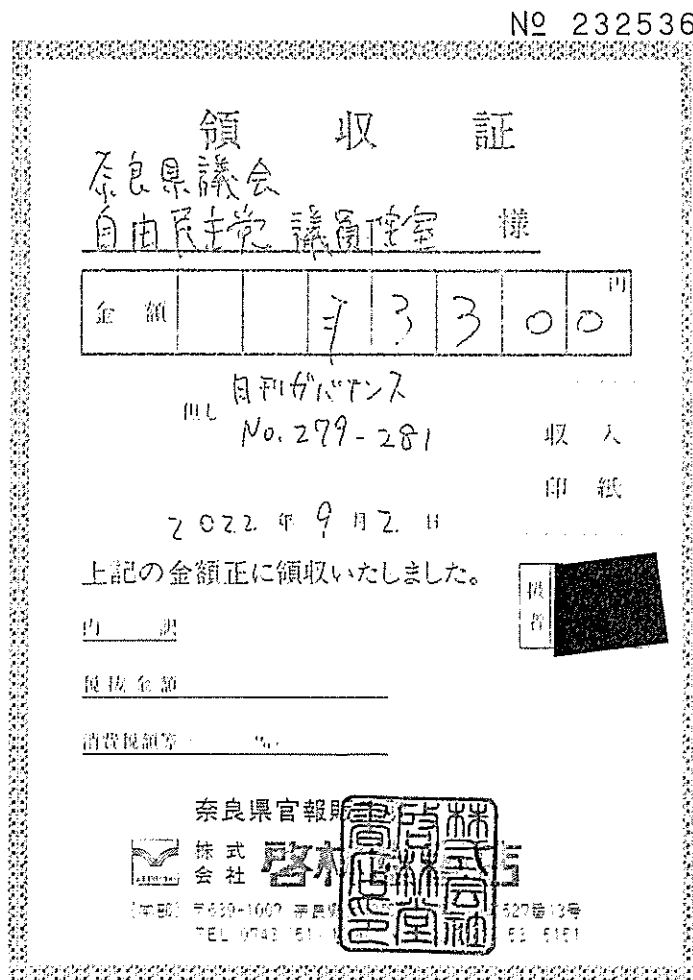 № 232536
領収証
奈良県議会
自由民主党 議員控室 様
金額 ¥3300 円
但し 月刊ガバナンス
No.279-281
収入
印紙
2022年9月2日
上記の金額正に領収いたしました。
扱者
内訳
税抜金額
消費税額等 %
奈良県官報販
株式会社 啓林
株式会社啓林堂書店印
〒639-1007
TEL 0743
627番13号
5151